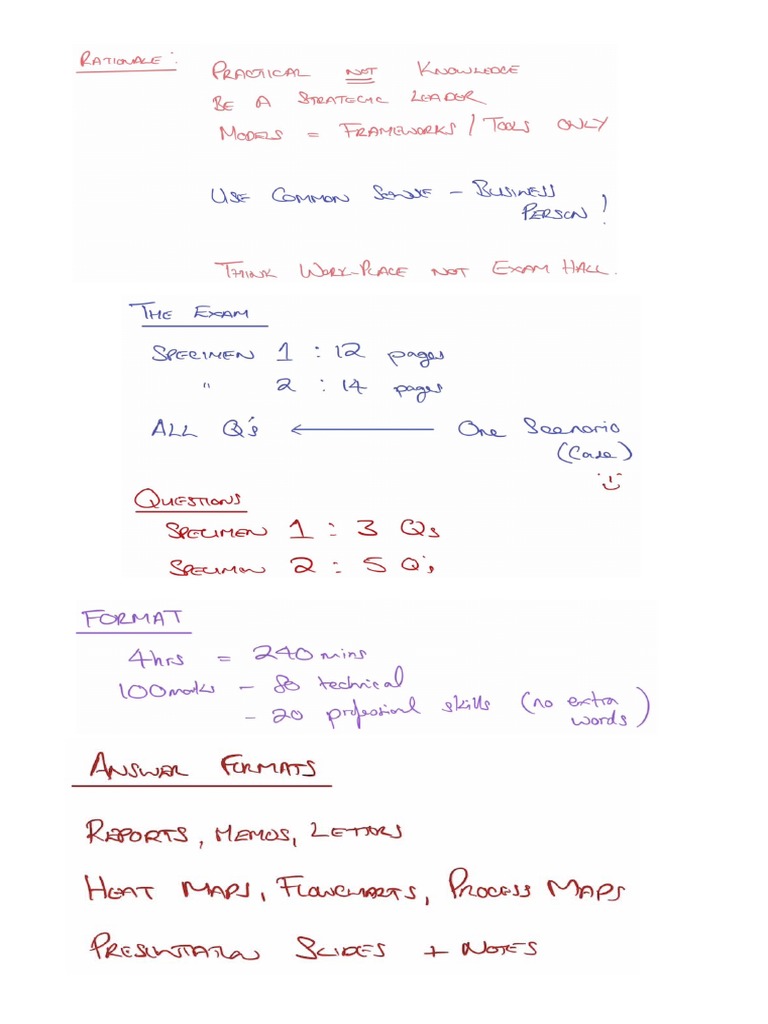 RATIONALE:
PRACTICAL NOT KNOWLEDGE
BE A STRATEGIC LEADER
MODELS = FRAMEWORKS / TOOLS ONLY
USE COMMON SENSE – BUSINESS
PERSON!
THINK WORK-PLACE NOT EXAM HALL.
THE EXAM
SPECIMEN 1 : 12 pages
" 2 : 14 pages
ALL Q's ← One Scenario
(Case)
QUESTIONS
SPECIMEN 1 : 3 Qs
SPECIMEN 2 : 5 Q's
FORMAT
4hrs = 240 mins
100 marks – 80 technical
– 20 professional skills (no extra
words)
ANSWER FORMATS
REPORTS, MEMOS, LETTERS
HEAT MAPS, FLOWCHARTS, PROCESS MAPS
PRESENTATION SLIDES + NOTES